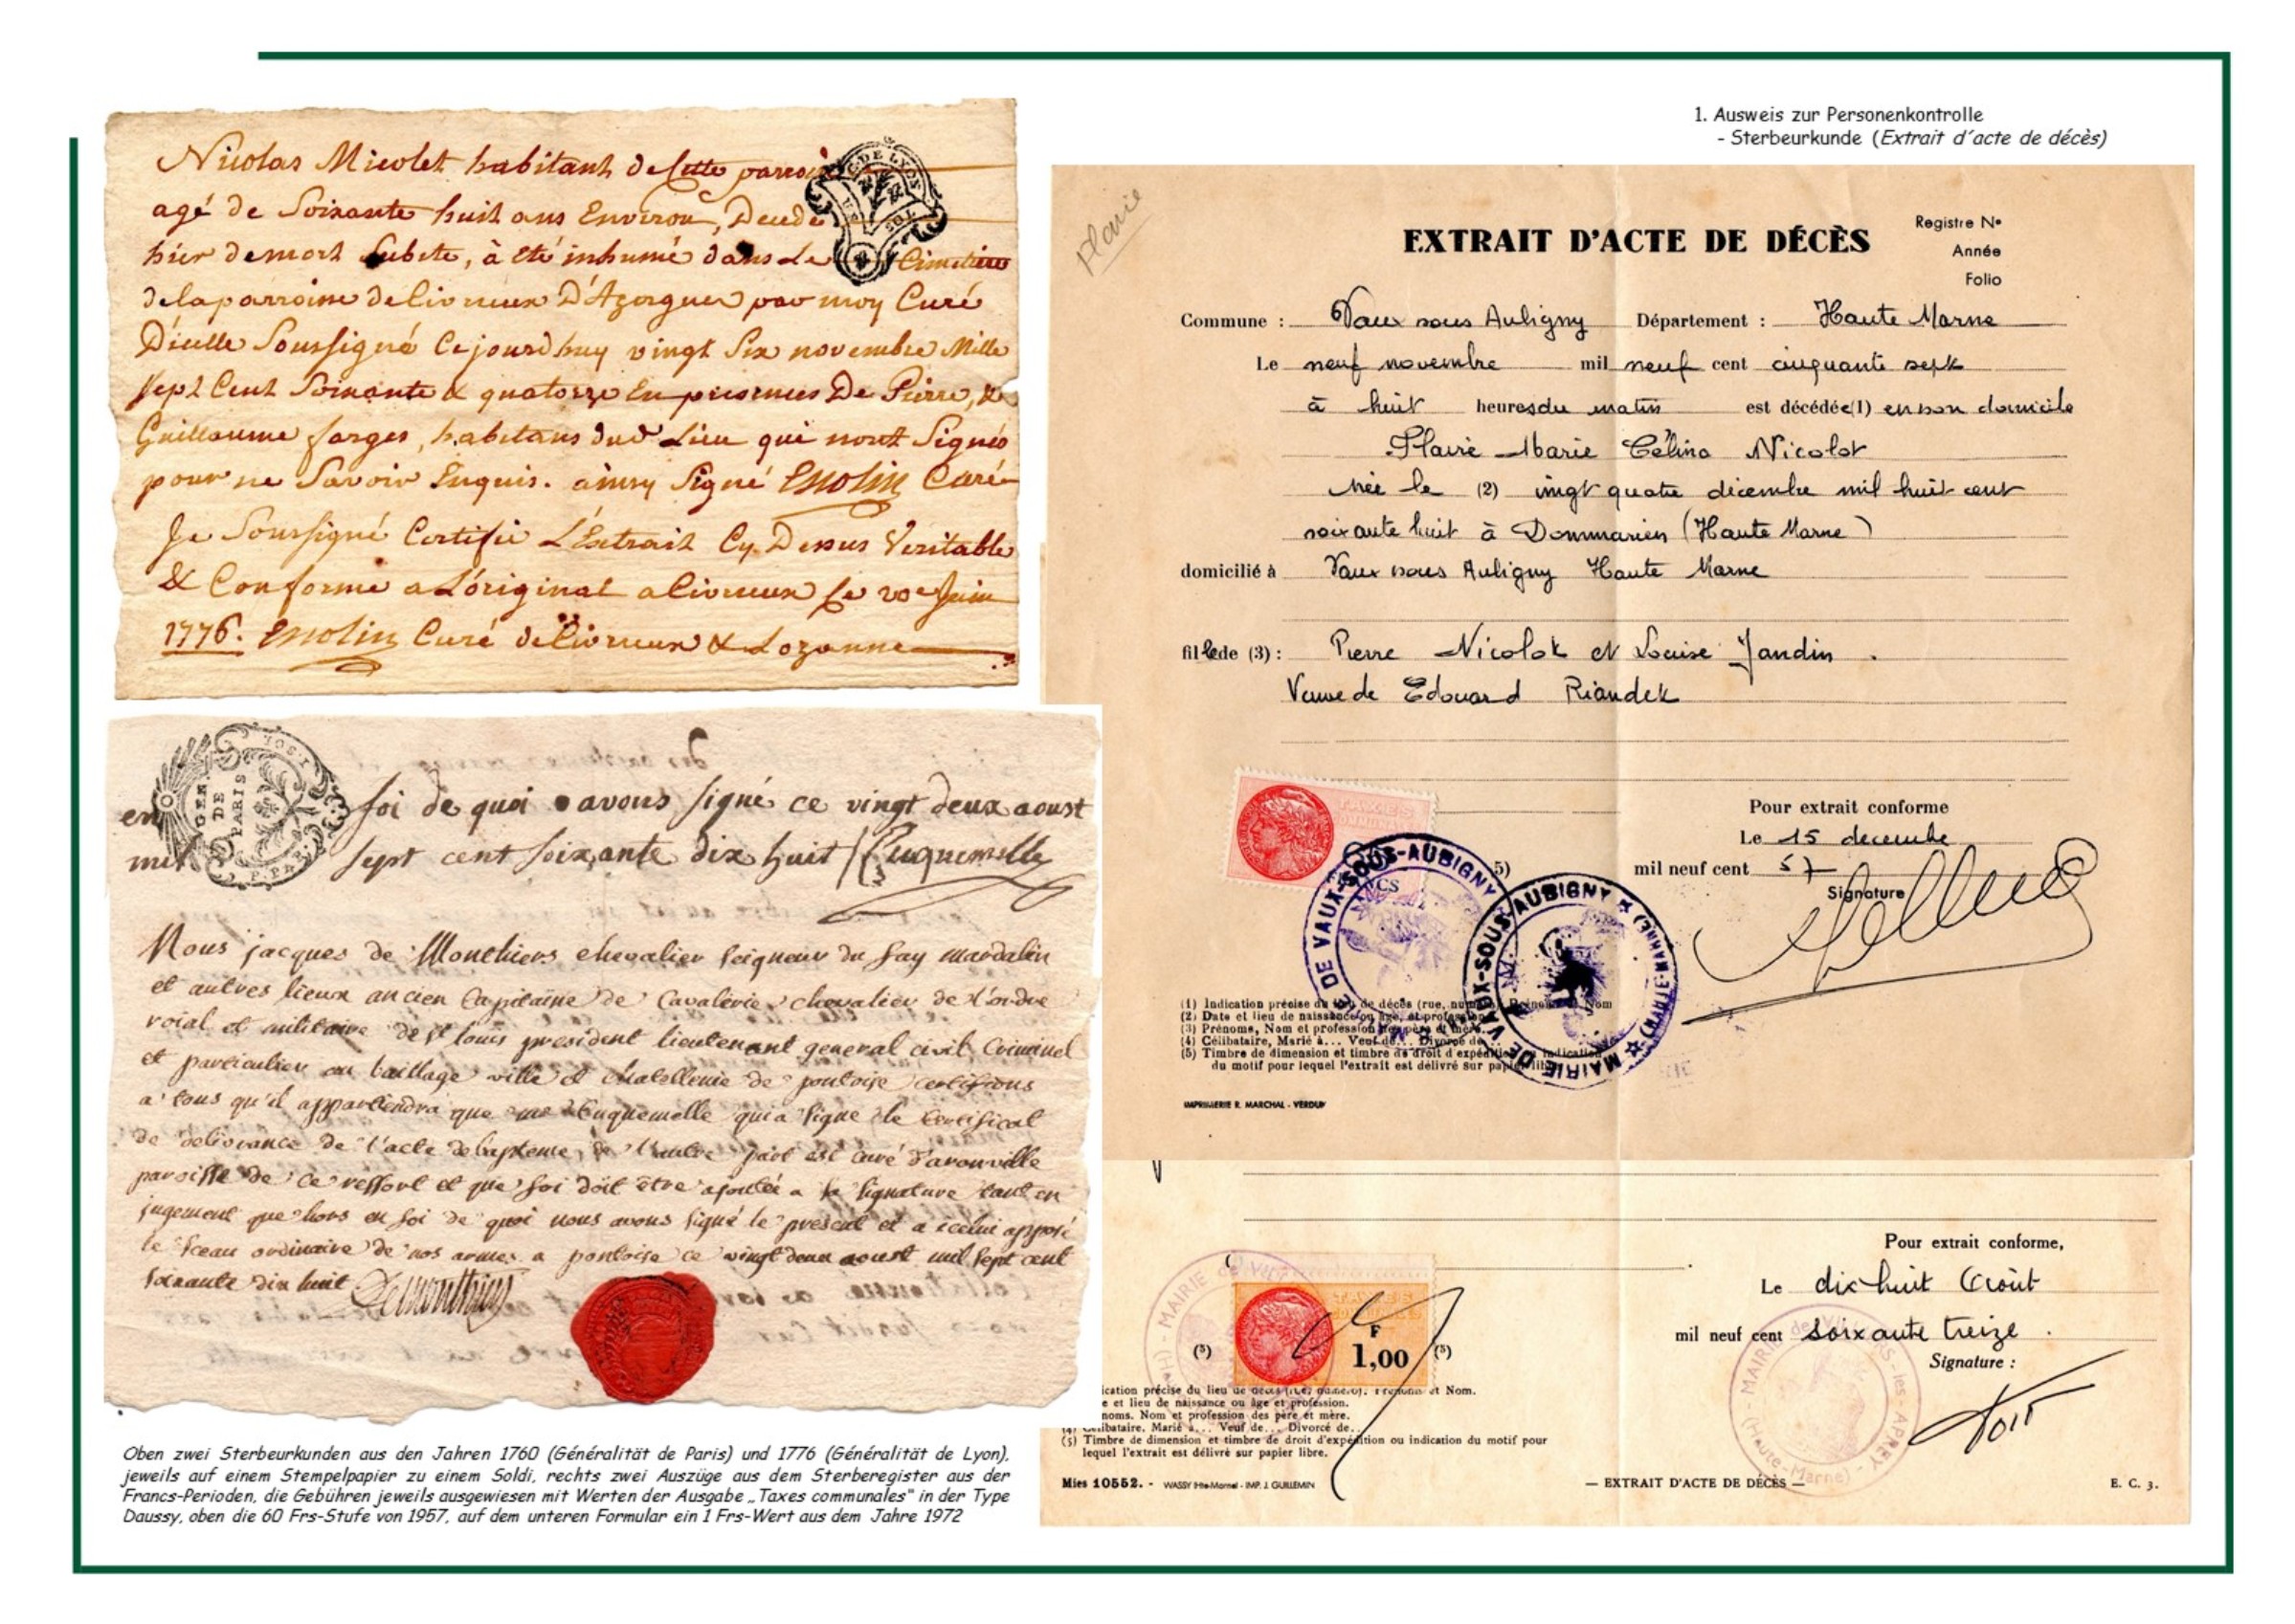 1. Ausweis zur Personenkontrolle
- Sterbeurkunde (Extrait d´acte de décès)
Nicolas Micolet habitant de Cette parroi
agé de Soixante huit ans Environ, Decedé
hier de mort Subite, à été inhumé dans Le Cimetiere
de la parroisse de Civrieux D'Azergues par moy Curé
D'icelle Soussigné Cejourdhuy vingt Six novembre Mille
Sept Cent Soixante & quatorze En presences De Pierre, &
Guillaume farges, habitans dud. Lieu qui n'ont Signés
pour ne Savoir Enquis. ainsy Signé Esnolin Curé
Je Soussigné Certifie L'Extrait Cy Dessus Veritable
& Conforme a L'original a Civrieux Le 20e Juin
1776. Esnolin Curé de Civrieux & Lozanne
G. DE LYON
GEN. DE PARIS
en foi de quoi avons signé ce vingt deux aoust
mil sept cent soixante dix huit / Cuquemelle
Nous jacques de Monthiers chevalier seigneur du fay mardalin
et autres lieux ancien Capitaine de Cavalerie chevalier de l'ordre
roial et militaire de st louis president lieutenant general civil Criminel
et particulier au baillage ville et chatellenie de pontoise certifions
a tous qu'il appartiendra que me Cuquemelle qui a signé le certificat
de delivrance de l'acte de bapteme, de l'autre part est curé d'aronville
paroisse de ce ressort et que foi doit être ajoutée a sa signature tant en
jugement que hors en foi de quoi nous avons signé le present et a icelui apposé
le sceau ordinaire de nos armes a pontoise ce vingt deux aoust mil sept cent
soixante dix huit Demonthiers
Oben zwei Sterbeurkunden aus den Jahren 1760 (Généralität de Paris) und 1776 (Généralität de Lyon),
jeweils auf einem Stempelpapier zu einem Soldi, rechts zwei Auszüge aus dem Sterberegister aus der
Francs-Perioden, die Gebühren jeweils ausgewiesen mit Werten der Ausgabe „Taxes communales" in der Type
Daussy, oben die 60 Frs-Stufe von 1957, auf dem unteren Formular ein 1 Frs-Wert aus dem Jahre 1972
EXTRAIT D'ACTE DE DÉCÈS
Registre No
Année
Folio
Commune : Vaux sous Aubigny Département : Haute Marne
Le neuf novembre mil neuf cent cinquante sept
à huit heures du matin est décédée (1) en son domicile
Flavie Marie Célina Nicolot
née le (2) vingt quatre décembre mil huit cent
soixante huit à Dommarien (Haute Marne)
domicilié à Vaux sous Aubigny Haute Marne
fille de (3) : Pierre Nicolot et Louise Jandin .
Veuve de Edouard Riandet
TAXES
Pour extrait conforme
Le 15 decembre
mil neuf cent 57
Signature
5)
MAIRIE DE VAUX-SOUS-AUBIGNY
MAIRIE DE VAUX-SOUS-AUBIGNY (HAUTE-MARNE)
(1) Indication précise du lieu de décès (rue, numéro), Prénoms et Nom
(2) Date et lieu de naissance ou âge, et profession
(3) Prénoms, Nom et profession des père et mère.
(4) Célibataire, Marié à... Veuf de... Divorcé de
(5) Timbre de dimension et timbre de droit d'expédition ou indication
du motif pour lequel l'extrait est délivré sur papier libre
IMPRIMERIE R. MARCHAL - VERDUN
Pour extrait conforme,
Le dix huit Août
mil neuf cent soixante treize .
Signature :
F
1,00
(5) (5)
MAIRIE de Villiers-les-Aprey (Haute-Marne)
ication précise du lieu de décès (rue, numéro), Prénoms et Nom.
e et lieu de naissance ou âge et profession.
noms. Nom et profession des père et mère.
(4) Célibataire. Marié à... Veuf de... Divorcé de...
(5) Timbre de dimension et timbre de droit d'expédition ou indication du motif pour
lequel l'extrait est délivré sur papier libre.
Mies 10552. - WASSY (Hte-Marne) - IMP. J. GUILLEMIN
— EXTRAIT D'ACTE DE DÉCÈS —
E. C. 3.